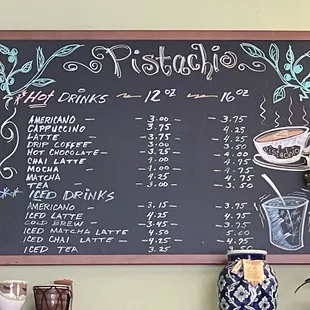 Pistachio
Hot Drinks 12 oz 16 oz
Americano - 3.00 - 3.75
Cappuccino - 3.75 - 4.25
Latte - 3.75 - 4.25
Drip Coffee - 3.00 - 3.50
Hot Chocolate - 3.25 - 4.00
Chai Latte - 4.00 - 4.75
Mocha - 4.00 - 4.75
Matcha - 4.25 - 4.75
Tea - 3.00 - 3.50
Iced Drinks
Americano - 3.15 - 3.75
Iced Latte - 4.25 4.75
Cold Brew - 3.45 - 3.75
Iced Matcha Latte 4.50 5.00
Iced Chai Latte - 4.25 - 4.75
Iced Tea 3.25 3.50
Pistachio